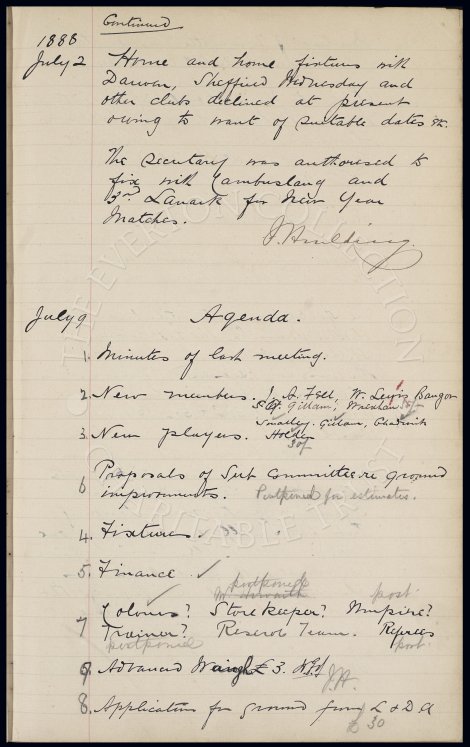 Continued
1888
July 2 Home and home fixtures with
Darwen, Sheffield Wednesday and
other clubs declined at present
owing to want of suitable dates &c.
The secretary was authorised to
fix with Cambuslang and
3rd Lanark for New Year
Matches.
J. Houlding
July 9 Agenda.
1. Minutes of last meeting.
2. New members. J. A. Fell, W. Lewis Bangor
Gillam, Wrexham
Smalley. Gillam, Chadwick
3. New players. Holden
30/-
6 Proposals of Sub Committee re ground
improvments. Postponed for estimates.
4. Fixtures.
5. Finance ✓
postponed
post.
7 Colours? Storekeeper? Umpire?
Trainer? Reserve Team. Referees
postponed post.
9. Advanced Waugh £3.
J.H.
8. Application for ground from L & D A
£30
THE EVERTON COLLECTION
CHARITABLE TRUST